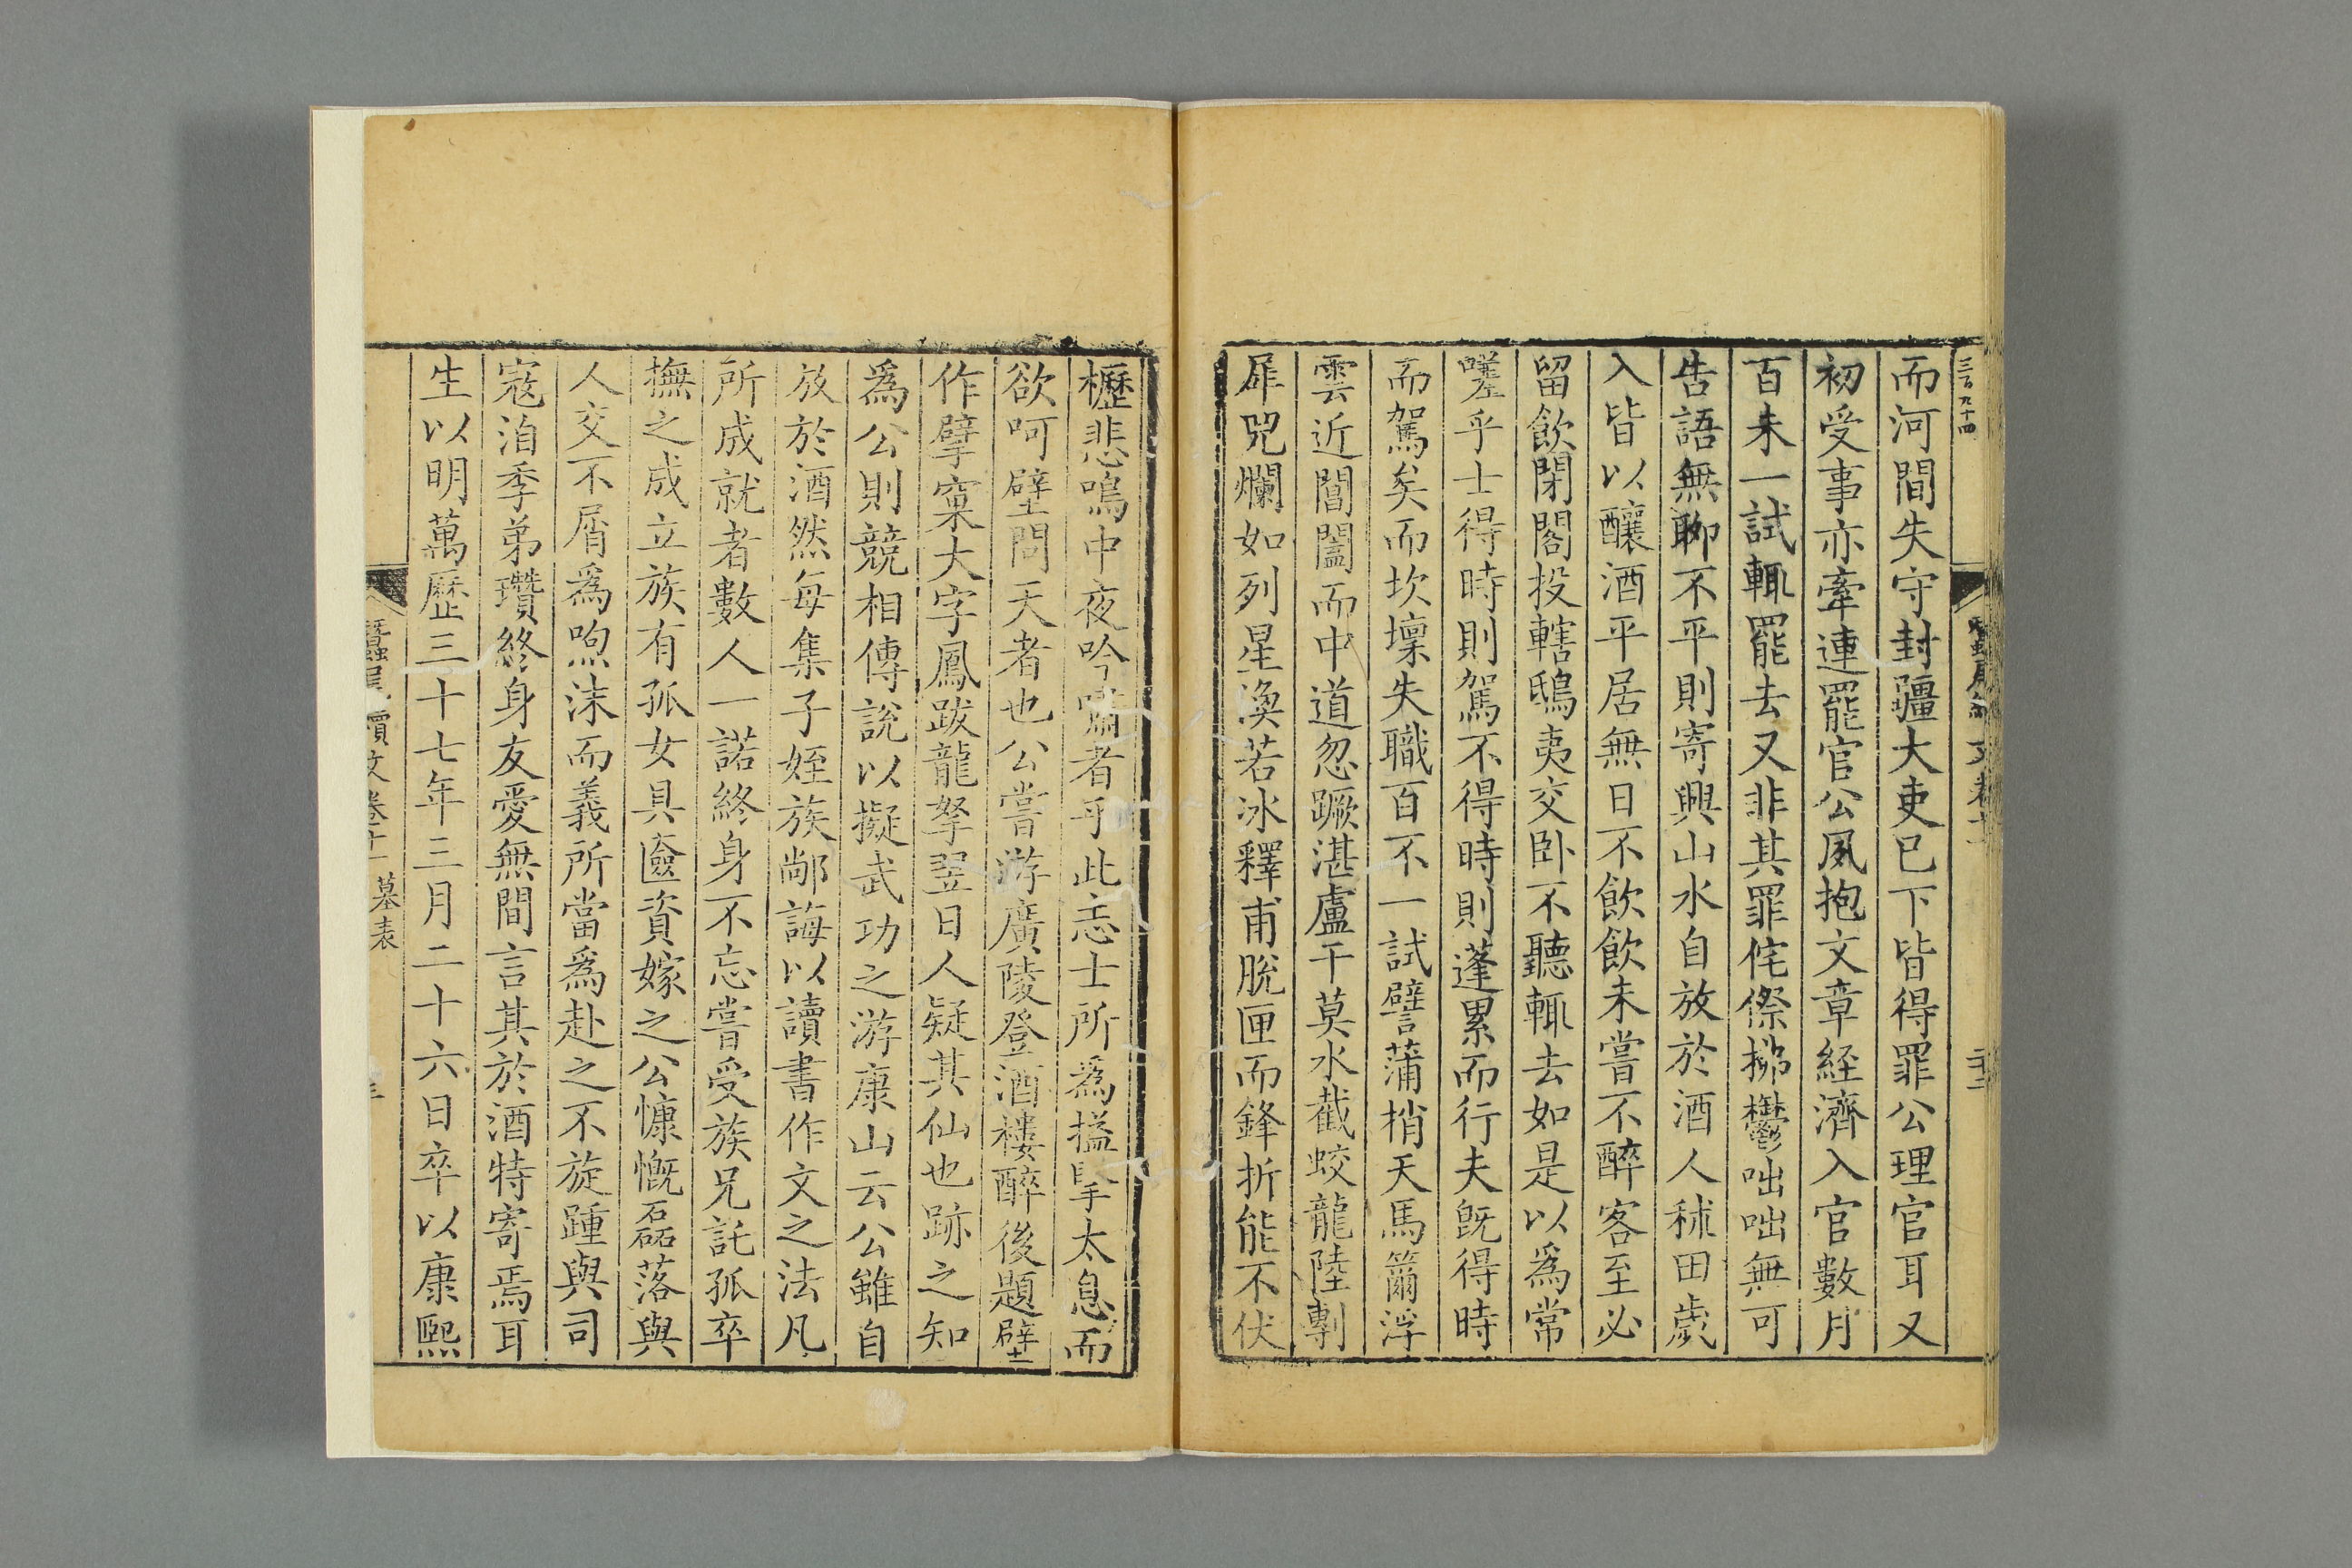 三百九十四
而河間失守封疆大吏已下皆得罪公理官耳又
初受事亦牽連罷官公夙抱文章経濟入官數月
百未一試輒罷去又非其罪侘傺拂鬱咄咄無可
告語無聊不平則寄興山水自放於酒人秫田歲
入皆以釀酒平居無日不飲飲未嘗不醉客至必
留飲閉閣投轄鴟夷交卧不聽輒去如是以爲常
嗟乎士得時則駕不得時則蓬累而行夫旣得時
而駕矣而坎壈失職百不一試譬蒲梢天馬籋浮
雲近閶闔而中道忽蹶湛盧干莫水截蛟龍陸剸
犀兕爛如列星渙若冰釋甫脫匣而鋒折能不伏
櫪悲鳴中夜吟嘯者乎此志士所爲搤掔太息而
欲呵壁問天者也公嘗游廣陵登酒樓醉後題壁
作擘窠大字鳳跋龍拏翌日人疑其仙也跡之知
爲公則競相傳說以擬武功之游康山云公雖自
放於酒然每集子姪族鄰誨以讀書作文之法凡
所成就者數人一諾終身不忘嘗受族兄託孤卒
撫之成立族有孤女具匳資嫁之公慷慨磊落與
人交不屑爲呴沫而義所當爲赴之不旋踵與司
寇洎季弟瓚終身友愛無間言其於酒特寄焉耳
生以明萬歷三十七年三月二十六日卒以康熙
蠶尾續文卷十一 墓表